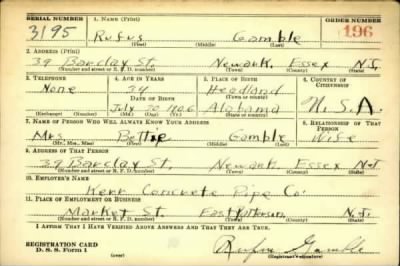 SERIAL NUMBER 1. NAME (Print) ORDER NUMBER
3195 Rufus Gamble 196
(First) (Middle) (Last)
2. ADDRESS (Print)
39 Barclay St. Newark, Essex N.J.
(Number and street or R. F. D. number) (Town) (County) (State)
3. TELEPHONE 4. AGE IN YEARS 5. PLACE OF BIRTH 6. COUNTRY OF CITIZENSHIP
None 34 Headland
DATE OF BIRTH (Town or county)
July 20 1906 Alabama U.S.A.
(Exchange) (Number) (Mo.) (Day) (Yr.) (State or country)
7. NAME OF PERSON WHO WILL ALWAYS KNOW YOUR ADDRESS 8. RELATIONSHIP OF THAT PERSON
Mrs. Bettie Gamble Wife
(Mr., Mrs., Miss) (First) (Middle) (Last)
9. ADDRESS OF THAT PERSON
39 Barclay St, Newark, Essex N.J.
(Number and street or R. F. D. number) (Town) (County) (State)
10. EMPLOYER'S NAME
Kerr Concrete Pipe Co.
11. PLACE OF EMPLOYMENT OR BUSINESS
Market St. East Paterson, N.J.
(Number and street or R. F. D. number) (Town) (County) (State)
I AFFIRM THAT I HAVE VERIFIED ABOVE ANSWERS AND THAT THEY ARE TRUE.
REGISTRATION CARD Rufus Gamble
D. S. S. Form 1 (over) (Registrant's signature)